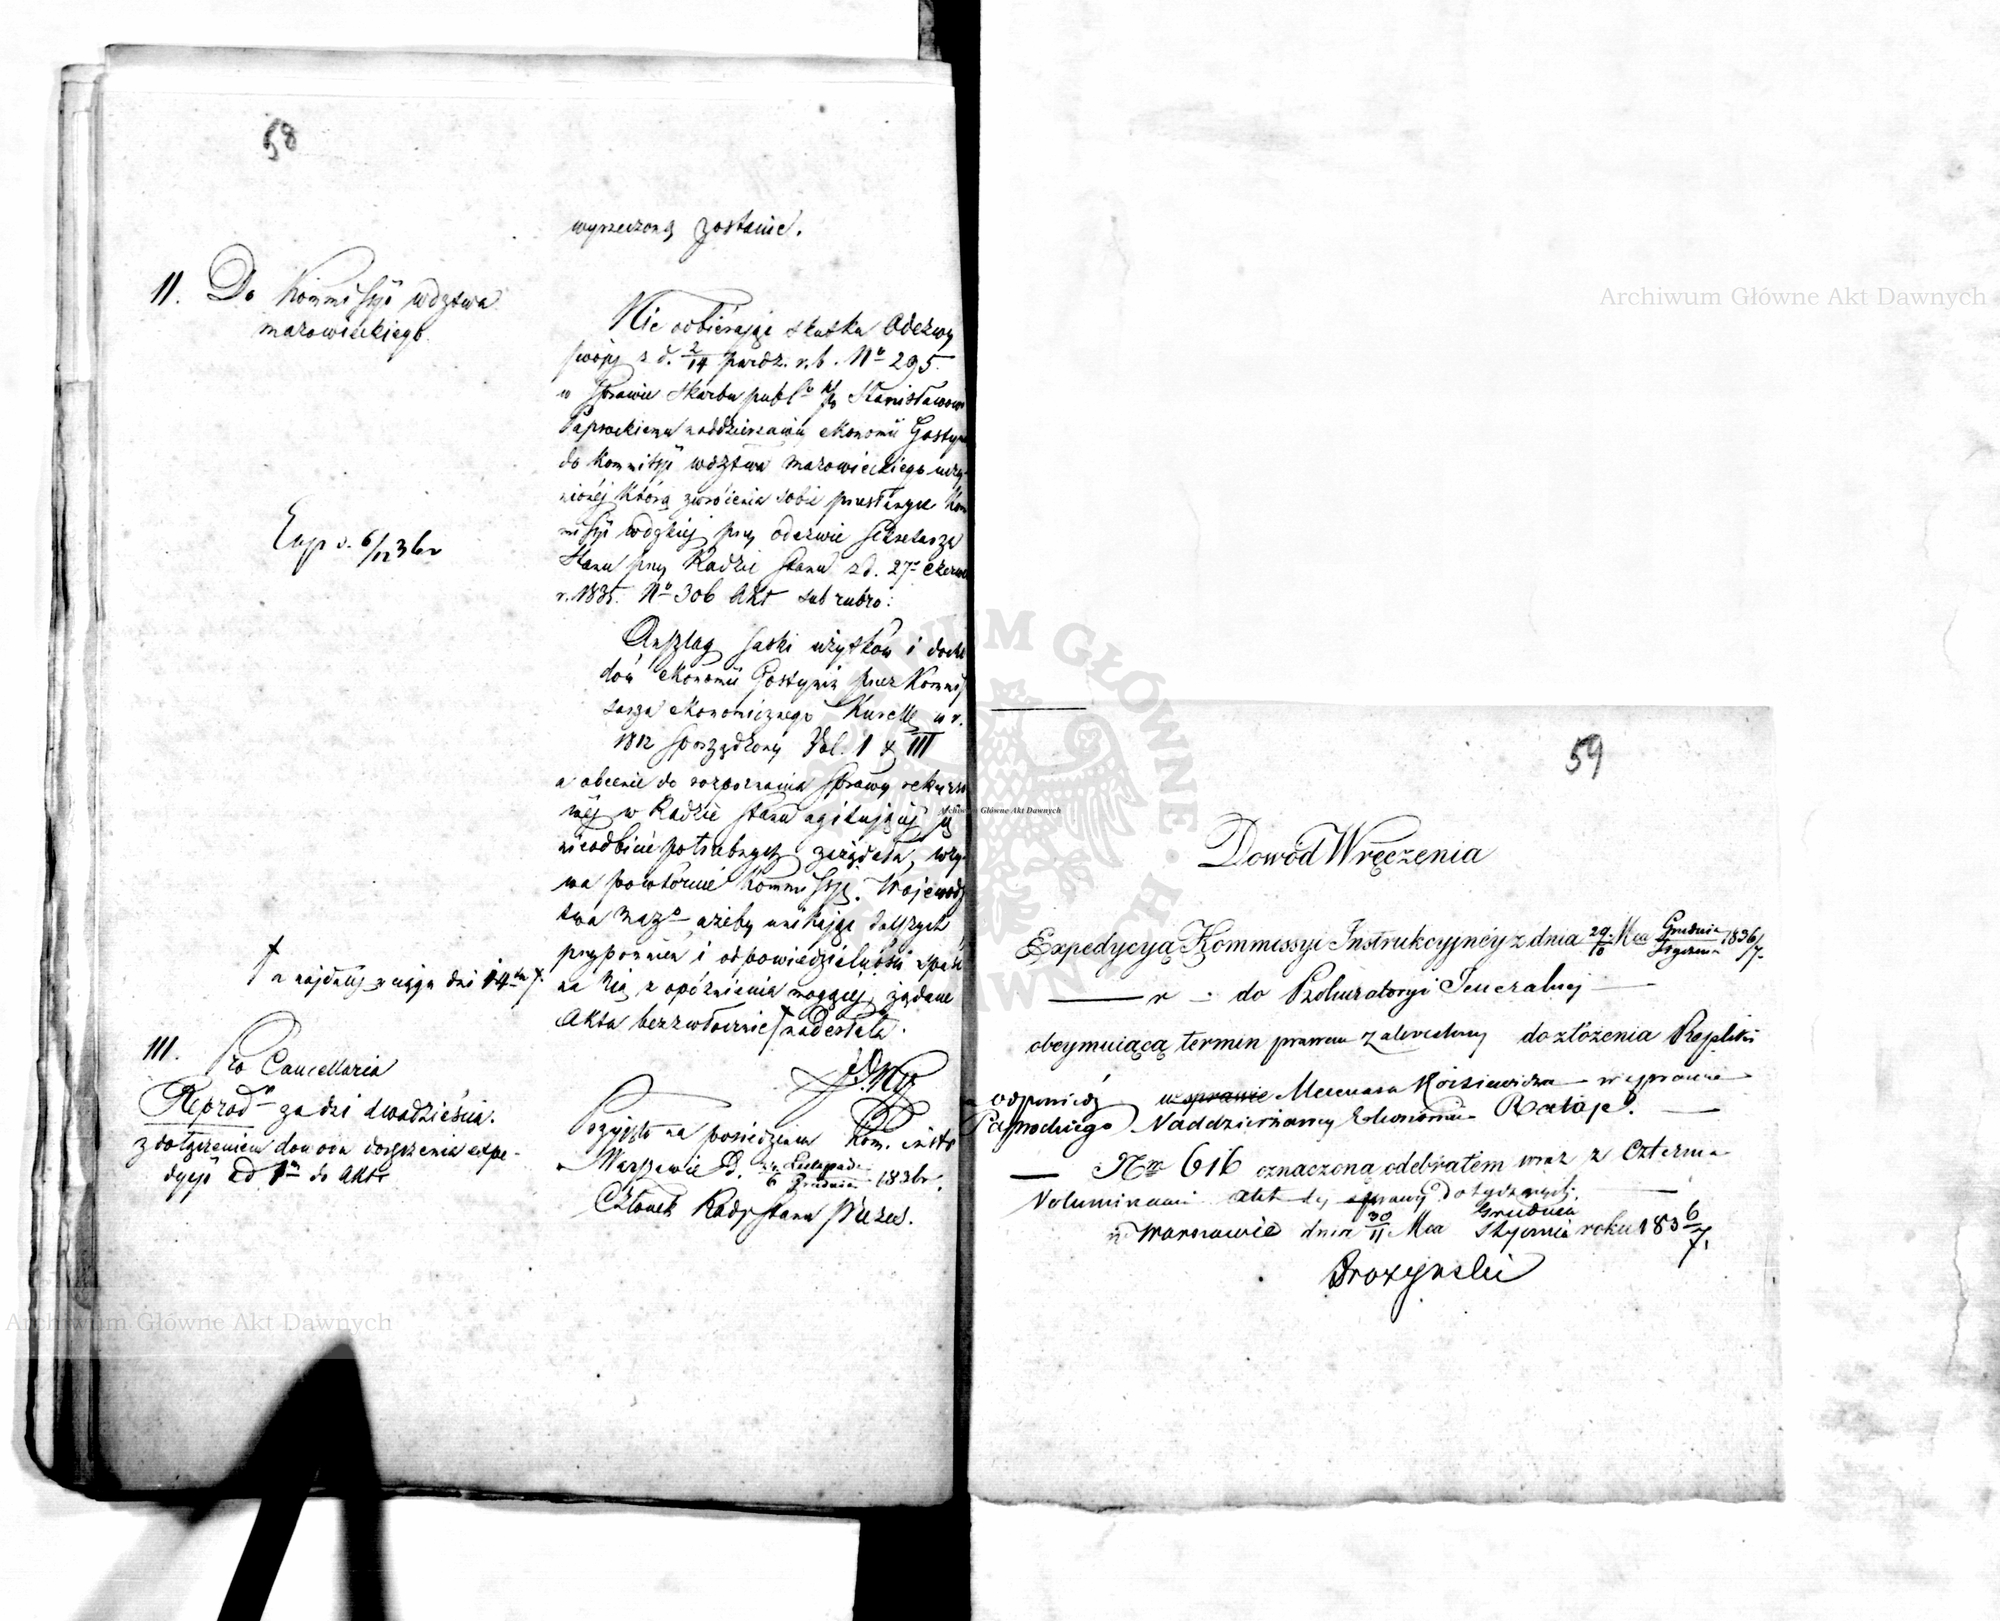 58
wyrzeczoną zostanie.
II. Do Kommissyi Wdztwa
mazowieckiego.
Nie odbierając skutku Odezwy
swojéj z d. 2/14 Pazdz. r. b. No 295.
w sprawie Skarbu publo Stanisławowi
Paprockiemu naddzierżawcy ekonomii Gostyn
do Kommissyi wdztwa mazowieckiego uczy-
nionéj którą zwrócenia sobie przesłanych Kom
missyi wdzkiej przy odezwie Sekretarza
Stanu przy Radzie Stanu z d. 27 Czerw
r. 1835. No 306 Akt sub rubro:
Anszlag Saski użytków i docho
dów ekonomii Gostynin przez Kommis
sarza ekonomicznego w r.
1812 sporządzony Vol. I & III
a obecnie do rozpoznania sprawy rekurso
wéj w Radzie Stanu agitującéj się
nieodbicie potrzebnych zażądała, wzy-
wa powtórnie Kommissyę Wojewodz
twa Mazo ażeby unikając dalszych
przypomnień i odpowiedzialności spaść
na Nią z opóźnienia mogącéj, żądane
Akta bezzwłocznie † nadesłała.
Exp. d. 6/12 36 r
† a najdalej w ciągu dni 14tu
III.
Pro Cancellaria
Reprod za dni dwadzieścia.
z dołączeniem dowodu doręczenia expe-
dycyi ad 1m do Akt
Przyjęto na posiedzeniu Kom. Instr
w Warszawie d. Listopada
6 Grudnia 1836 r.
Członek Rady Stanu Prezes.
59
Dowód Wręczenia
Expedycyą Kommissyi Instrukcyjnéy z dnia 29/10 Mca Grudnia/Stycznia 1836/7.
r do Prokuratoryi Jeneralnej
obeymuiącą termin prawem zakreślony do złożenia Repliki
odpowiedź w sprawie Mecenasa w sprawie
Paprockiego Naddzierżawcy Ekonomii Rataje.
Nro 616 oznaczoną odebrałem wraz z Czterma
Voluminami akt téj sprawy dotyczących.
w Warszawie dnia 30/11 Mca Grudnia/Stycznia roku 1836/7.